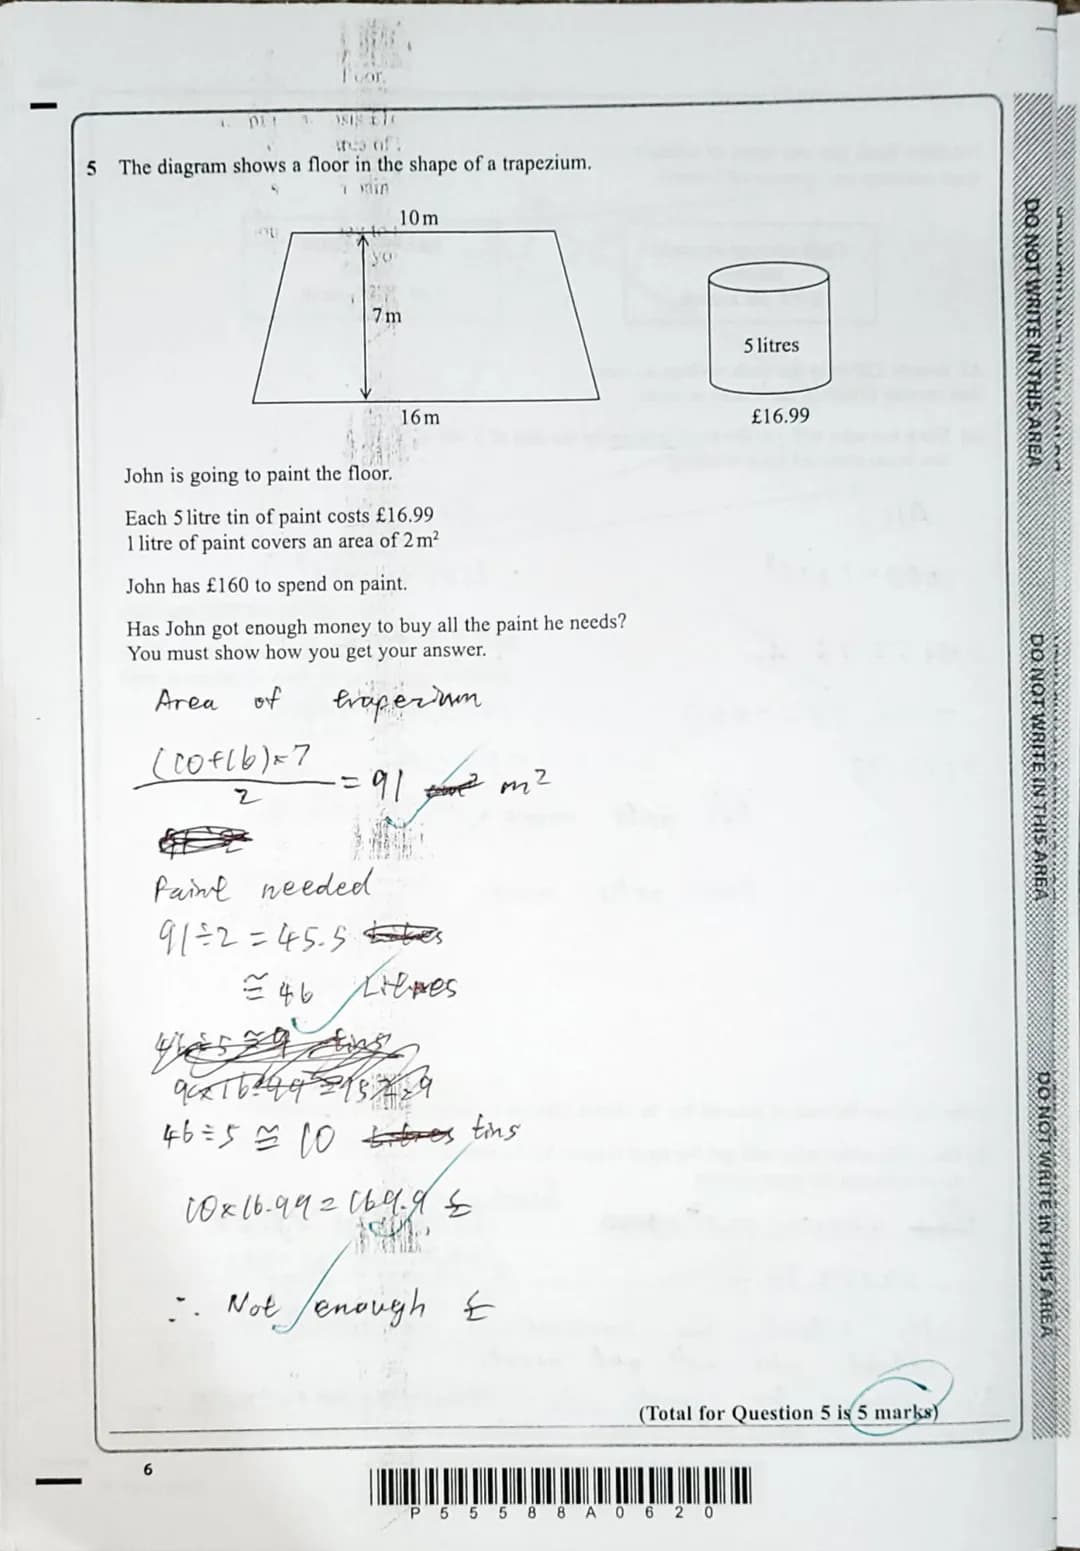 5 The diagram shows a floor in the shape of a trapezium.
10 m
7 m
16 m
5 litres
£16.99
John is going to paint the floor.
Each 5 litre tin of paint costs £16.99
1 litre of paint covers an area of 2 m²
John has £160 to spend on paint.
Has John got enough money to buy all the paint he needs?
You must show how you get your answer.
Area of trapezium
(10+16)×7
2
= 91 m²
Paint needed
91÷2 = 45.5
≅ 46 Litres
46÷5 ≅ 10 tins
10×16.99 = 169.9 £
∴ Not enough £
(Total for Question 5 is 5 marks)
6
P 5 5 5 8 8 A 0 6 2 0
DO NOT WRITE IN THIS AREA
DO NOT WRITE IN THIS AREA
DO NOT WRITE IN THIS AREA